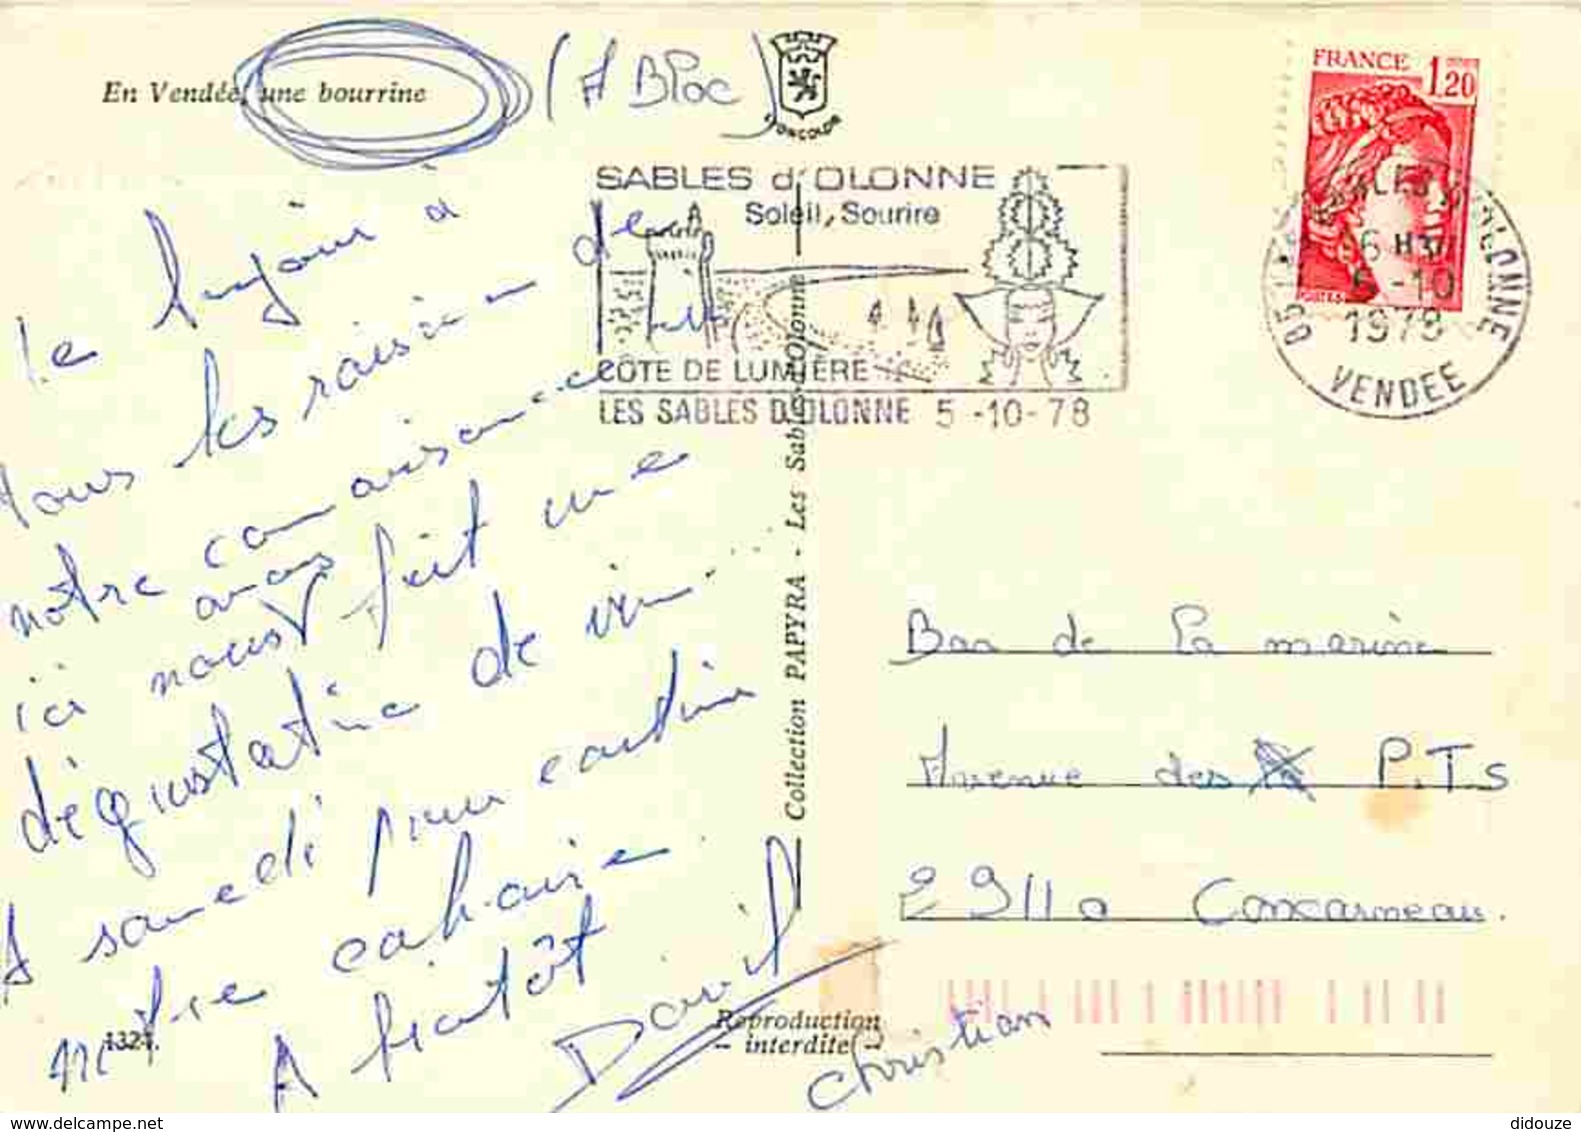 En Vendée, une bourrine
(A Bloc)
LYONCOLOR
FRANCE 1,20
POSTES
SABLES d'OLONNE
Soleil, Sourire
CÔTE DE LUMIÈRE
LES SABLES D.OLONNE 5-10-78
85
OLONNE
5-10
1978
VENDEE
Le à
Tous les raisin de
notre connaisance
ici nous avons fait une
dégustation de vin...
A samedi pour
notre
A biatôt
David
Christian
Collection PAPYRA - Les Sables-d'Olonne
Bar de la marine
Avenue des P.Ts
29110 Concarneau.
1321.
Reproduction
- interdite -
didouze